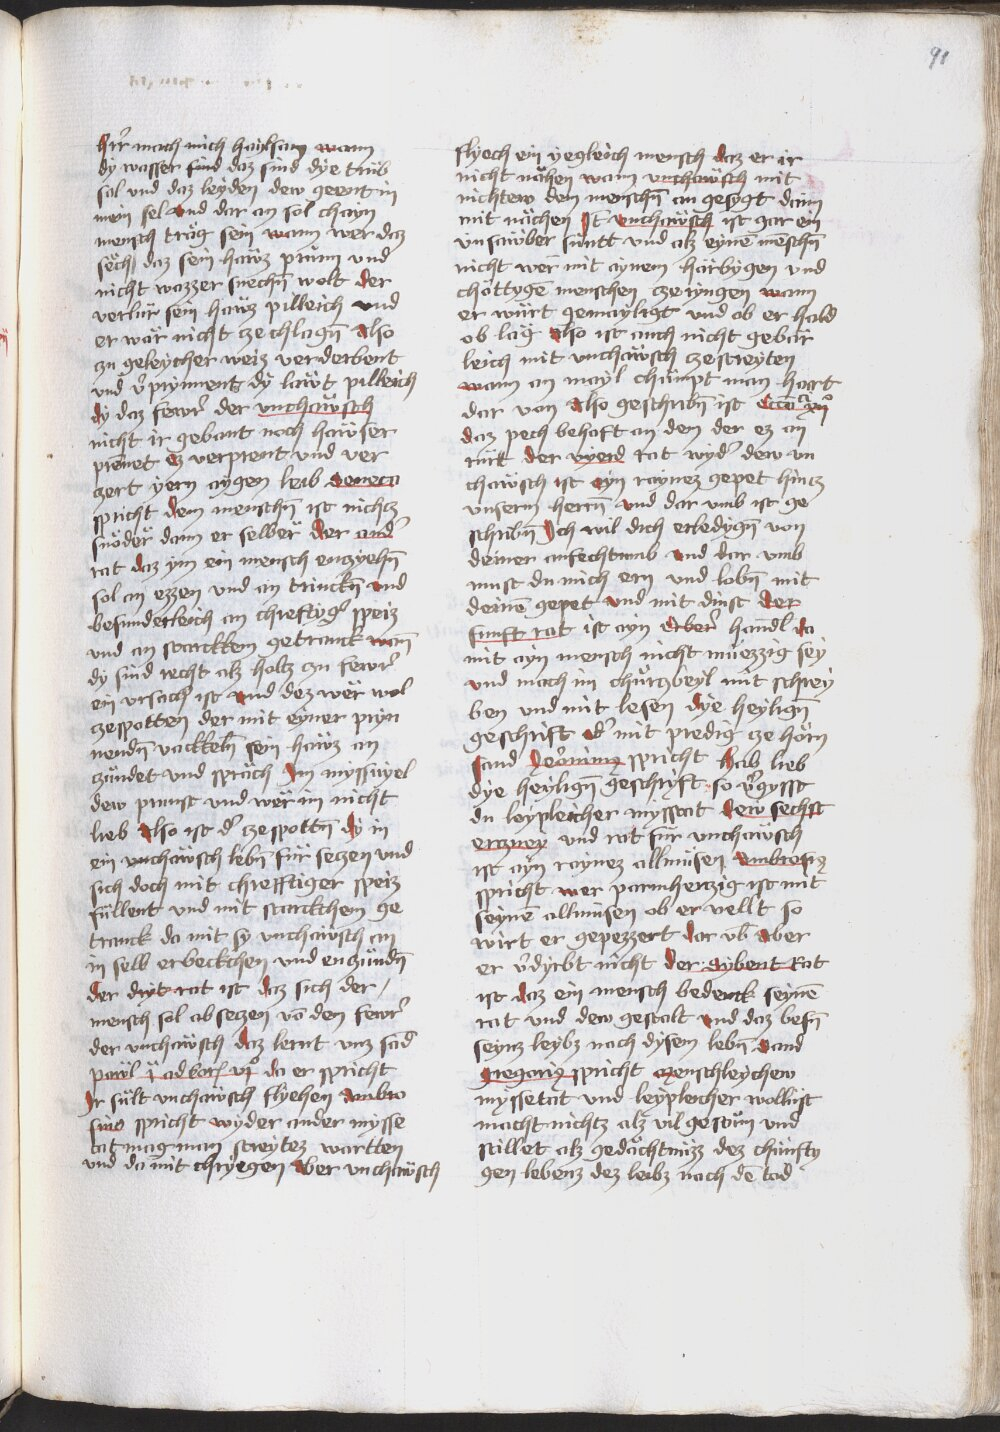 91
Herr mach mich haylsam wann
dy wasser sind daz sind dye trüb
sal vnd daz leyden dew geent in
mein sel vnd dar an sol chayn
mensch träg sein wann wer daz
säch daz sein haws prünn vnd
nicht wazzer suechn̄ wolt der
verlür sein haus pilleich vnd
er wär nicht ze chlagn̄ Also
zu geleycher weiz verderbent
vnd v̄prynnent dy läwt pilleich
dy daz fewr̄ der vnchäwsch
nicht ir gebant noch häwser
prēnet ez verprent vnd ver
zert yern aygen leib Seneca
spricht dem menschn̄ ist nichtz
snöder dann er selber der and̄
rat daz ym ein mensch enczyehn̄
sol an ezzen vnd an trinckn̄ vnd
besunderleich an chreftyḡ speiz
vnd an starckkem getranck wan̄
dy sind recht alz holtz czu fewr̄
ein vrsach ist vnd dez wer wol
ze spotten der mit eyner pryn
nendn̄ vackkeln̄ sein haws an
zündet vnd spräch Im myssviel
dew prunst vnd wer im nicht
lieb Also ist d̄ ze spottn̄ dy in
ein vnchäwsch lebn̄ für seczen vnd
sich doch mit chrefftiger speiz
füllent vnd mit starckchem ge
tranck da mit sy vnchäwsch an
in selb erbeckchen vnd enczündn̄
der dryt rat ist daz sich der
mensch sol abseczen vō den fewr̄
der vnchäwsch daz lernt vnz sād
pawl i ad kor̄ vi° da er spricht
Ir sült vnchäwsch flyehen Ambro
sius spricht wyder ander mysse
tat mag man streytez wartten
vnd da mit chryegen Aber vnchäwsch
flyech ein yegleich mensch daz er ir
nicht nähen wann vnchäwsch mit
nichtew den menschn̄ an gesygt dann
mit nächen It vnchäwsch ist gar ein
vnsawber suntt vnd alz eynē menschn̄
nicht wer mit aynem härbygen vnd
chöttygē menschen ze ryngen wann
er würt gemayligt vnd ob er hald
ob läg Also ist auch nicht gebär
leich mit vnchäwsch ze streyten
wann an mayl chümpt man hart
dar von Also geschribn̄ ist
daz pech behaft an den der ez an
rürt der vyerd rat wyd̄ dew vn
chäwsch ist eyn raynez gepet hincz
vnserm herrn̄ vnd dar vmb ist ge
schribn̄ Ich wil dich erledygn̄ von
deiner anfechtumb vnd dar vmb
must du mich ern vnd lobn̄ mit
deinē gepet vnd mit dinst der
fünft rat ist ayn erber̄ handl da
mit ayn mensch nicht müezzig sey
vnd mach im churczbeyl mit schrey
ben vnd mit lesen dye heylign̄
geschrift od̄ mit predig ze hörn
sand Jeronimus spricht hab lieb
dye heylign̄ geschrift so v̄gysst
du leypleicher mysstat dew sechst
erczney vnd rat für vnchäwsch
ist ayn raynez allmüsen Ambrosius
spricht wer parmherczig ist mit
seynē allmüsen ob er vellt so
wirt er gepezzert dar vb̄ Aber
er v̄dyrbt nicht der sybent Rat
ist daz ein mensch bedenck seynē
rat vnd dew gestalt vnd daz
seynz leybz nach dysem lebn̄ Sand
Gregorius spricht menschleychew
myssetat vnd leypleicher wollüst
macht nichtz alz vil gestüm vnd
stillet alz gedächtnüzz dez chünfty
gen lebenz dez leibz nach dē tod